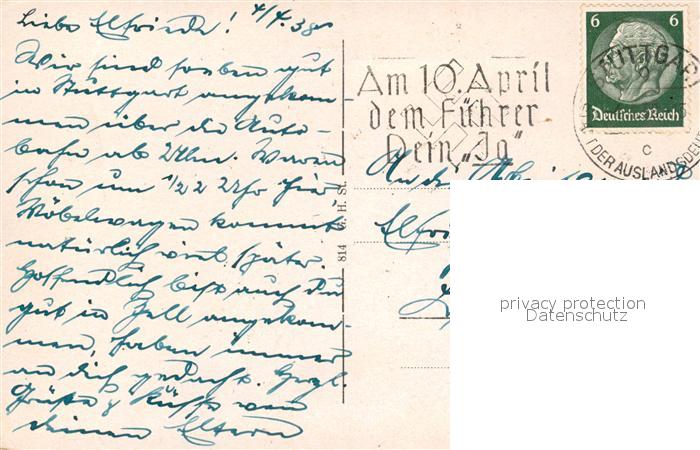 Liebe Elfriede! 4/4. 38
Wir sind soeben gut
in Stuttgart angekom-
men über die Auto-
bahn ab Ulm. Waren
schon um 1/2 2 Uhr hier
Möbelwagen kommt
natürlich viel später.
Hoffentlich bist auch Du
gut in Zell angekom-
men, haben immer
an dich gedacht. Herzl.
Grüße & Küsse von
deinen Eltern
814 G. H. St.
Am 10. April
dem Führer
Dein „Ja"
6 6
Deutsches Reich
STUTTGART
9
c
STADT DER AUSLANDSDEU
An die
Elfrie
privacy protection
Datenschutz